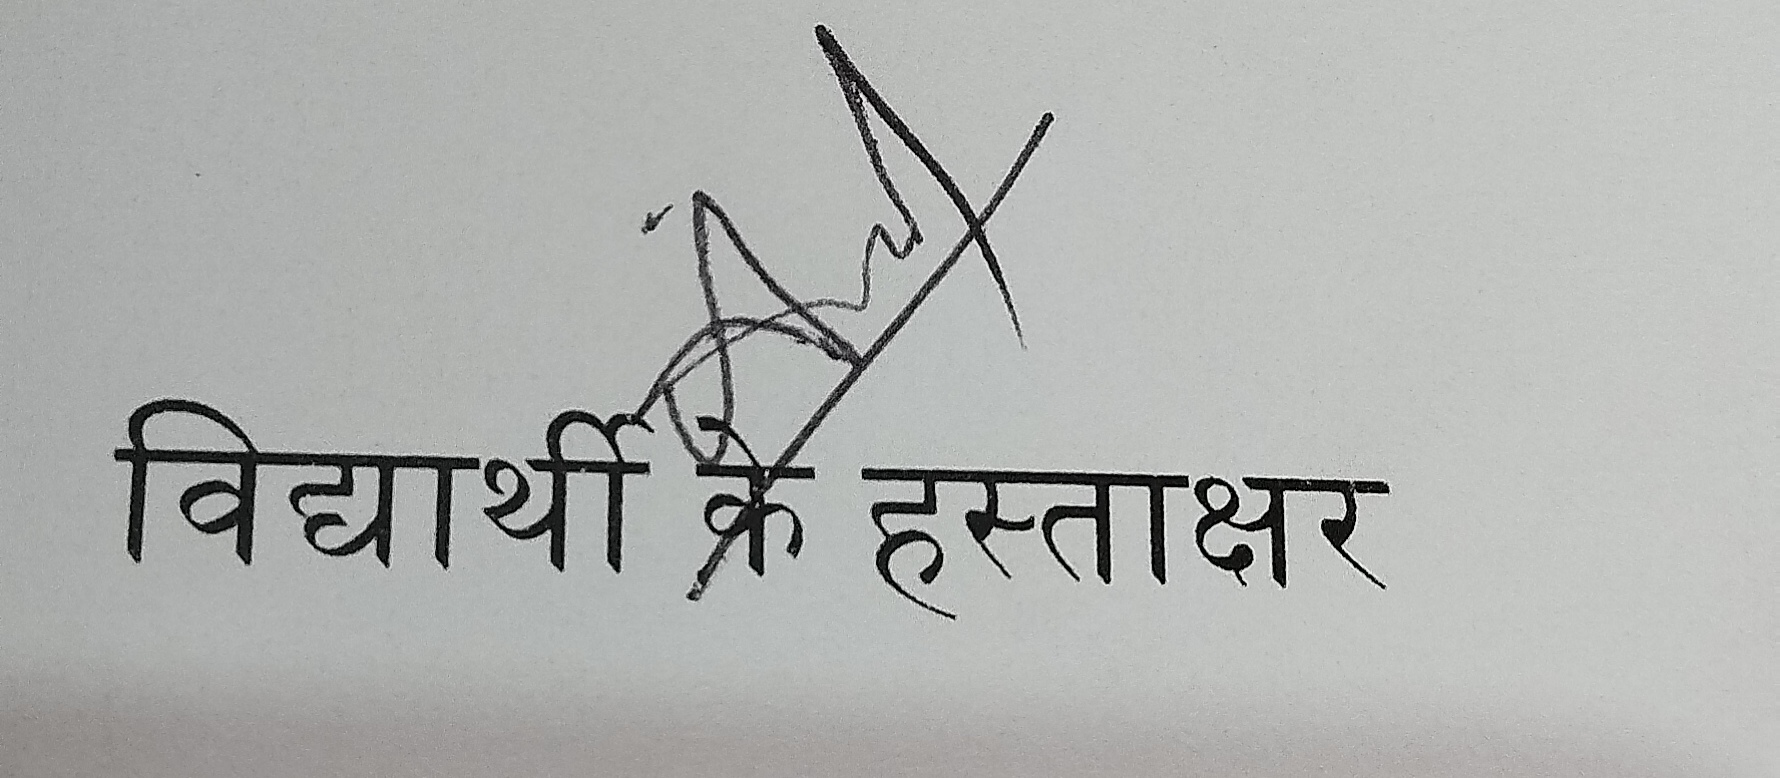 विद्यार्थी के हस्ताक्षर